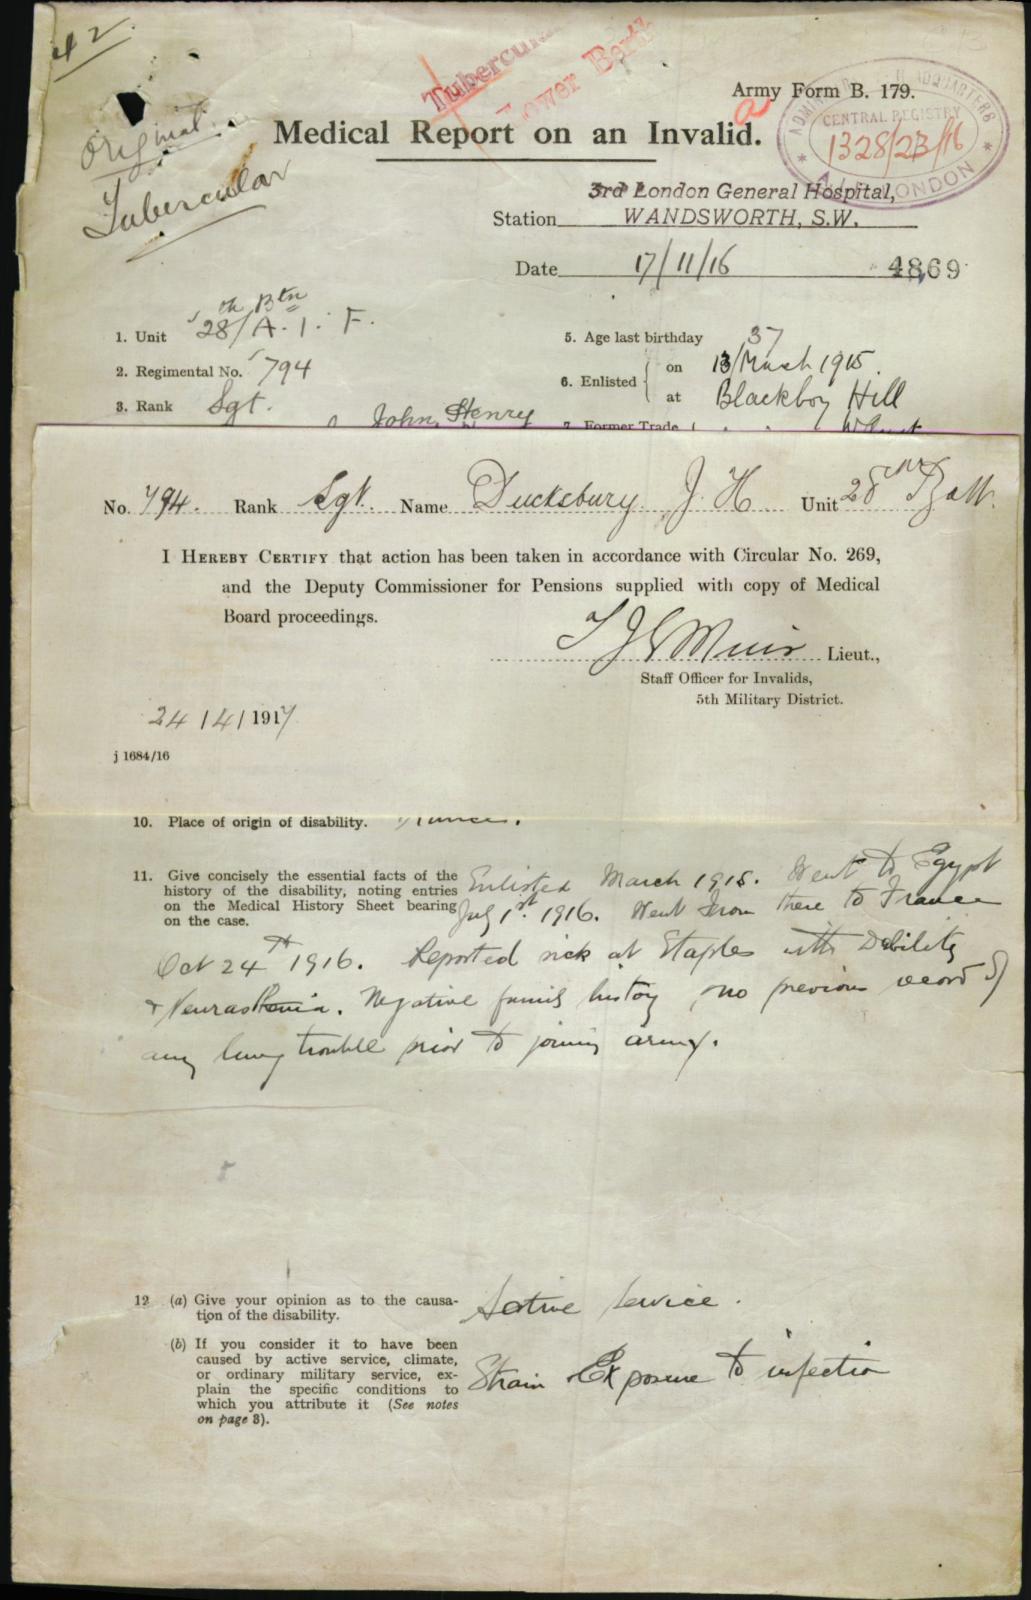 42.
Tubercu
Lower Berth
Army Form B. 179.
a
Original
Tubercular
Medical Report on an Invalid.
ADMIN HEADQUARTERS
CENTRAL REGISTRY
1328/23/16
A.I.F. LONDON
3rd London General Hospital,
Station WANDSWORTH, S.W.
Date 17/11/16 4869
1. Unit 28/th Btn A. I. F.
2. Regimental No. 794
3. Rank Sgt.
John Henry
5. Age last birthday 37
6. Enlisted { on 13/March 1915.
at Blackboy Hill
7. Former Trade
No. 794. Rank Sgt. Name Ducksbury J. H Unit 28th Batt.
I HEREBY CERTIFY that action has been taken in accordance with Circular No. 269,
and the Deputy Commissioner for Pensions supplied with copy of Medical
Board proceedings.
Muir Lieut.,
Staff Officer for Invalids,
5th Military District.
24 / 4 / 1917
j 1684/16
10. Place of origin of disability. France.
11. Give concisely the essential facts of the
history of the disability, noting entries
on the Medical History Sheet bearing
on the case.
Enlisted March 1915. Went to Egypt
July 1st. 1916. Went from there to France
Oct 24th 1916. Reported sick at Etaples with Debility
& Neurasthenia. Negative family history, no previous record of
any lung trouble prior to joining army.
12 (a) Give your opinion as to the causa-
tion of the disability.
Active Service.
(b) If you consider it to have been
caused by active service, climate,
or ordinary military service, ex-
plain the specific conditions to
which you attribute it (See notes
on page 3).
Strain & Exposure to infection